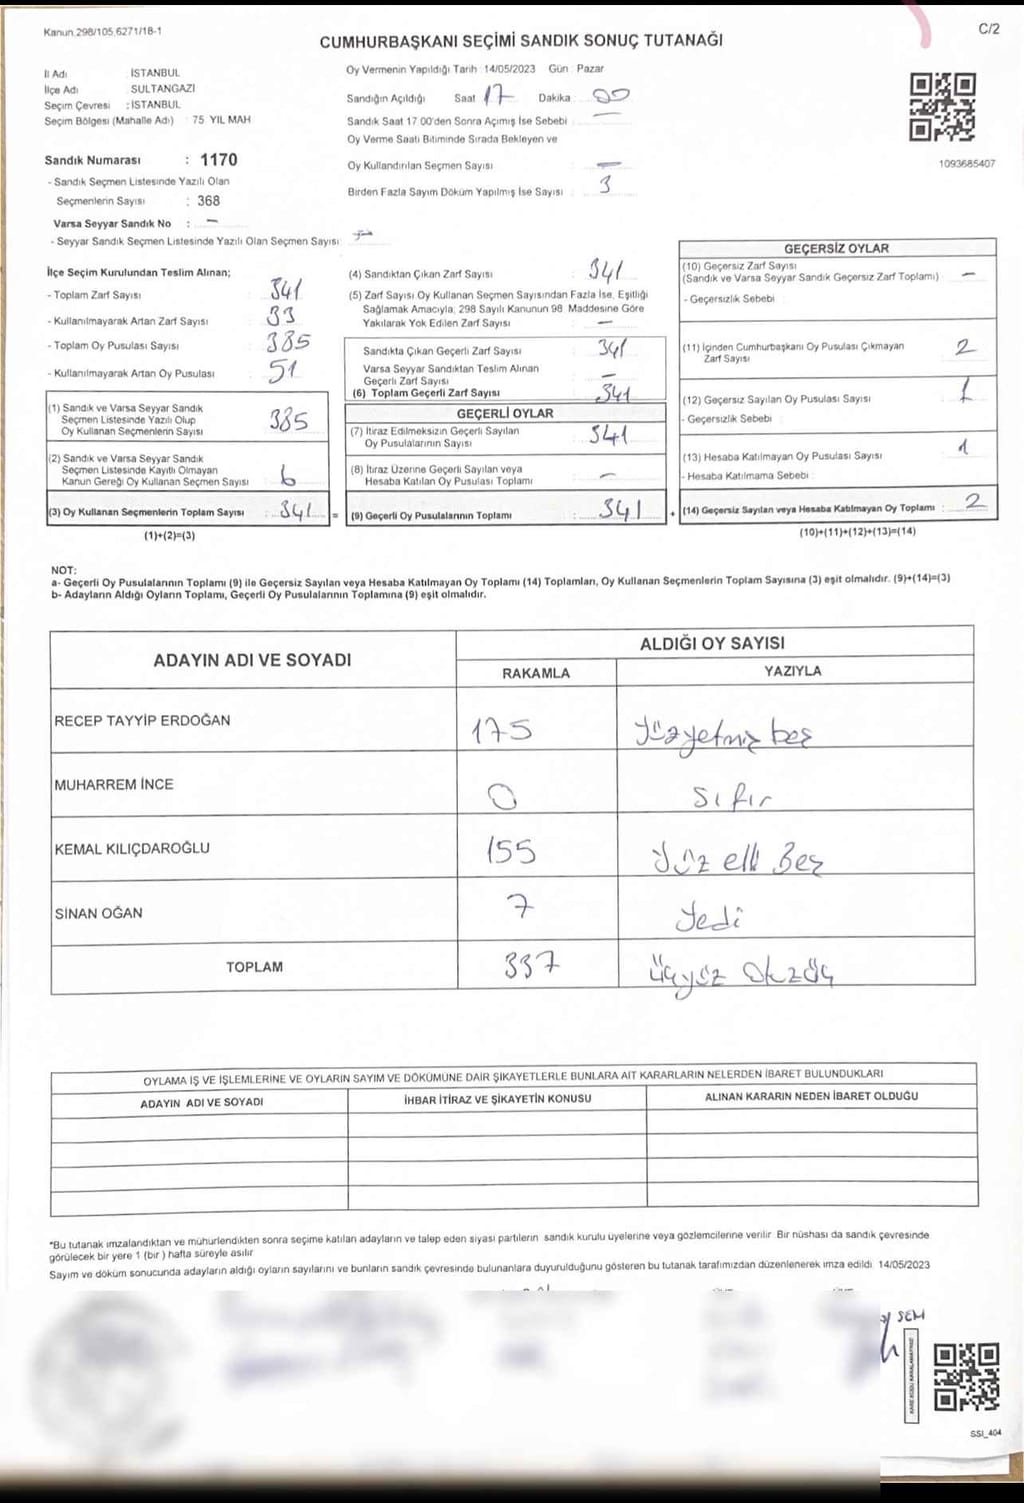 Kanun.298/105,6271/18-1
C/2
CUMHURBAŞKANI SEÇİMİ SANDIK SONUÇ TUTANAĞI
İl Adı : İSTANBUL
İlçe Adı : SULTANGAZI
Seçim Çevresi : İSTANBUL
Seçim Bölgesi (Mahalle Adı) : 75 YIL MAH
Oy Vermenin Yapıldığı Tarih :14/05/2023 Gün : Pazar
Sandığın Açıldığı Saat : 17 Dakika : 00
Sandık Saat 17 00'den Sonra Açımış İse Sebebi : —
Oy Verme Saati Bitiminde Sırada Bekleyen ve
Oy Kullandırılan Seçmen Sayısı : —
Birden Fazla Sayım Döküm Yapılmış İse Sayısı : 3
1093685407
Sandık Numarası : 1170
- Sandık Seçmen Listesinde Yazılı Olan
Seçmenlerin Sayısı : 368
Varsa Seyyar Sandık No : —
- Seyyar Sandık Seçmen Listesinde Yazılı Olan Seçmen Sayısı:
İlçe Seçim Kurulundan Teslim Alınan;
- Toplam Zarf Sayısı : 341
- Kullanılmayarak Artan Zarf Sayısı : 33
- Toplam Oy Pusulası Sayısı : 385
- Kullanılmayarak Artan Oy Pusulası : 51
(1) Sandık ve Varsa Seyyar Sandık
Seçmen Listesinde Yazılı Olup
Oy Kullanan Seçmenlerin Sayısı : 385
(2) Sandık ve Varsa Seyyar Sandık
Seçmen Listesinde Kayıtlı Olmayan
Kanun Gereği Oy Kullanan Seçmen Sayısı : 6
(3) Oy Kullanan Seçmenlerin Toplam Sayısı : 341 =
(1)+(2)=(3)
(4) Sandıktan Çıkan Zarf Sayısı : 341
(5) Zarf Sayısı Oy Kullanan Seçmen Sayısından Fazla İse, Eşitliği
Sağlamak Amacıyla, 298 Sayılı Kanunun 98 Maddesine Göre
Yakılarak Yok Edilen Zarf Sayısı : —
Sandıkta Çıkan Geçerli Zarf Sayısı : 341
Varsa Seyyar Sandıktan Teslim Alınan
Geçerli Zarf Sayısı : —
(6) Toplam Geçerli Zarf Sayısı : 341
GEÇERLİ OYLAR
(7) İtiraz Edilmeksizin Geçerli Sayılan
Oy Pusulalarının Sayısı : 341
(8) İtiraz Üzerine Geçerli Sayılan veya
Hesaba Katılan Oy Pusulası Toplamı : —
(9) Geçerli Oy Pusulalarının Toplamı : 341 +
GEÇERSİZ OYLAR
(10) Geçersiz Zarf Sayısı
(Sandık ve Varsa Seyyar Sandık Geçersiz Zarf Toplamı) : —
- Geçersizlik Sebebi :
(11) İçinden Cumhurbaşkanı Oy Pusulası Çıkmayan
Zarf Sayısı : 2
(12) Geçersiz Sayılan Oy Pusulası Sayısı : 1
- Geçersizlik Sebebi :
(13) Hesaba Katılmayan Oy Pusulası Sayısı : 1
- Hesaba Katılmama Sebebi :
(14) Geçersiz Sayılan veya Hesaba Katılmayan Oy Toplamı : 2
(10)+(11)+(12)+(13)=(14)
NOT:
a- Geçerli Oy Pusulalarının Toplamı (9) ile Geçersiz Sayılan veya Hesaba Katılmayan Oy Toplamı (14) Toplamları, Oy Kullanan Seçmenlerin Toplam Sayısına (3) eşit olmalıdır. (9)+(14)=(3)
b- Adayların Aldığı Oyların Toplamı, Geçerli Oy Pusulalarının Toplamına (9) eşit olmalıdır.
ADAYIN ADI VE SOYADI
ALDIĞI OY SAYISI
RAKAMLA YAZIYLA
RECEP TAYYİP ERDOĞAN 175 Yüzyetmiş beş
MUHARREM İNCE 0 Sıfır
KEMAL KILIÇDAROĞLU 155 Yüz elli Beş
SİNAN OĞAN 7 Yedi
TOPLAM 337 üçyüz
OYLAMA İŞ VE İŞLEMLERİNE VE OYLARIN SAYIM VE DÖKÜMÜNE DAİR ŞİKAYETLERLE BUNLARA AİT KARARLARIN NELERDEN İBARET BULUNDUKLARI
ADAYIN ADI VE SOYADI İHBAR İTİRAZ VE ŞİKAYETİN KONUSU ALINAN KARARIN NEDEN İBARET OLDUĞU
*Bu tutanak imzalandıktan ve mühürlendikten sonra seçime katılan adayların ve talep eden siyasi partilerin sandık kurulu üyelerine veya gözlemcilerine verilir Bir nüshası da sandık çevresinde
görülecek bir yere 1 (bir ) hafta süreyle asılır
Sayım ve döküm sonucunda adayların aldığı oyların sayılarını ve bunların sandık çevresinde bulunanlara duyurulduğunu gösteren bu tutanak tarafımızdan düzenlenerek imza edildi 14/05/2023
SEM
KARE KODU KARALAMAYINIZ
SSI_404